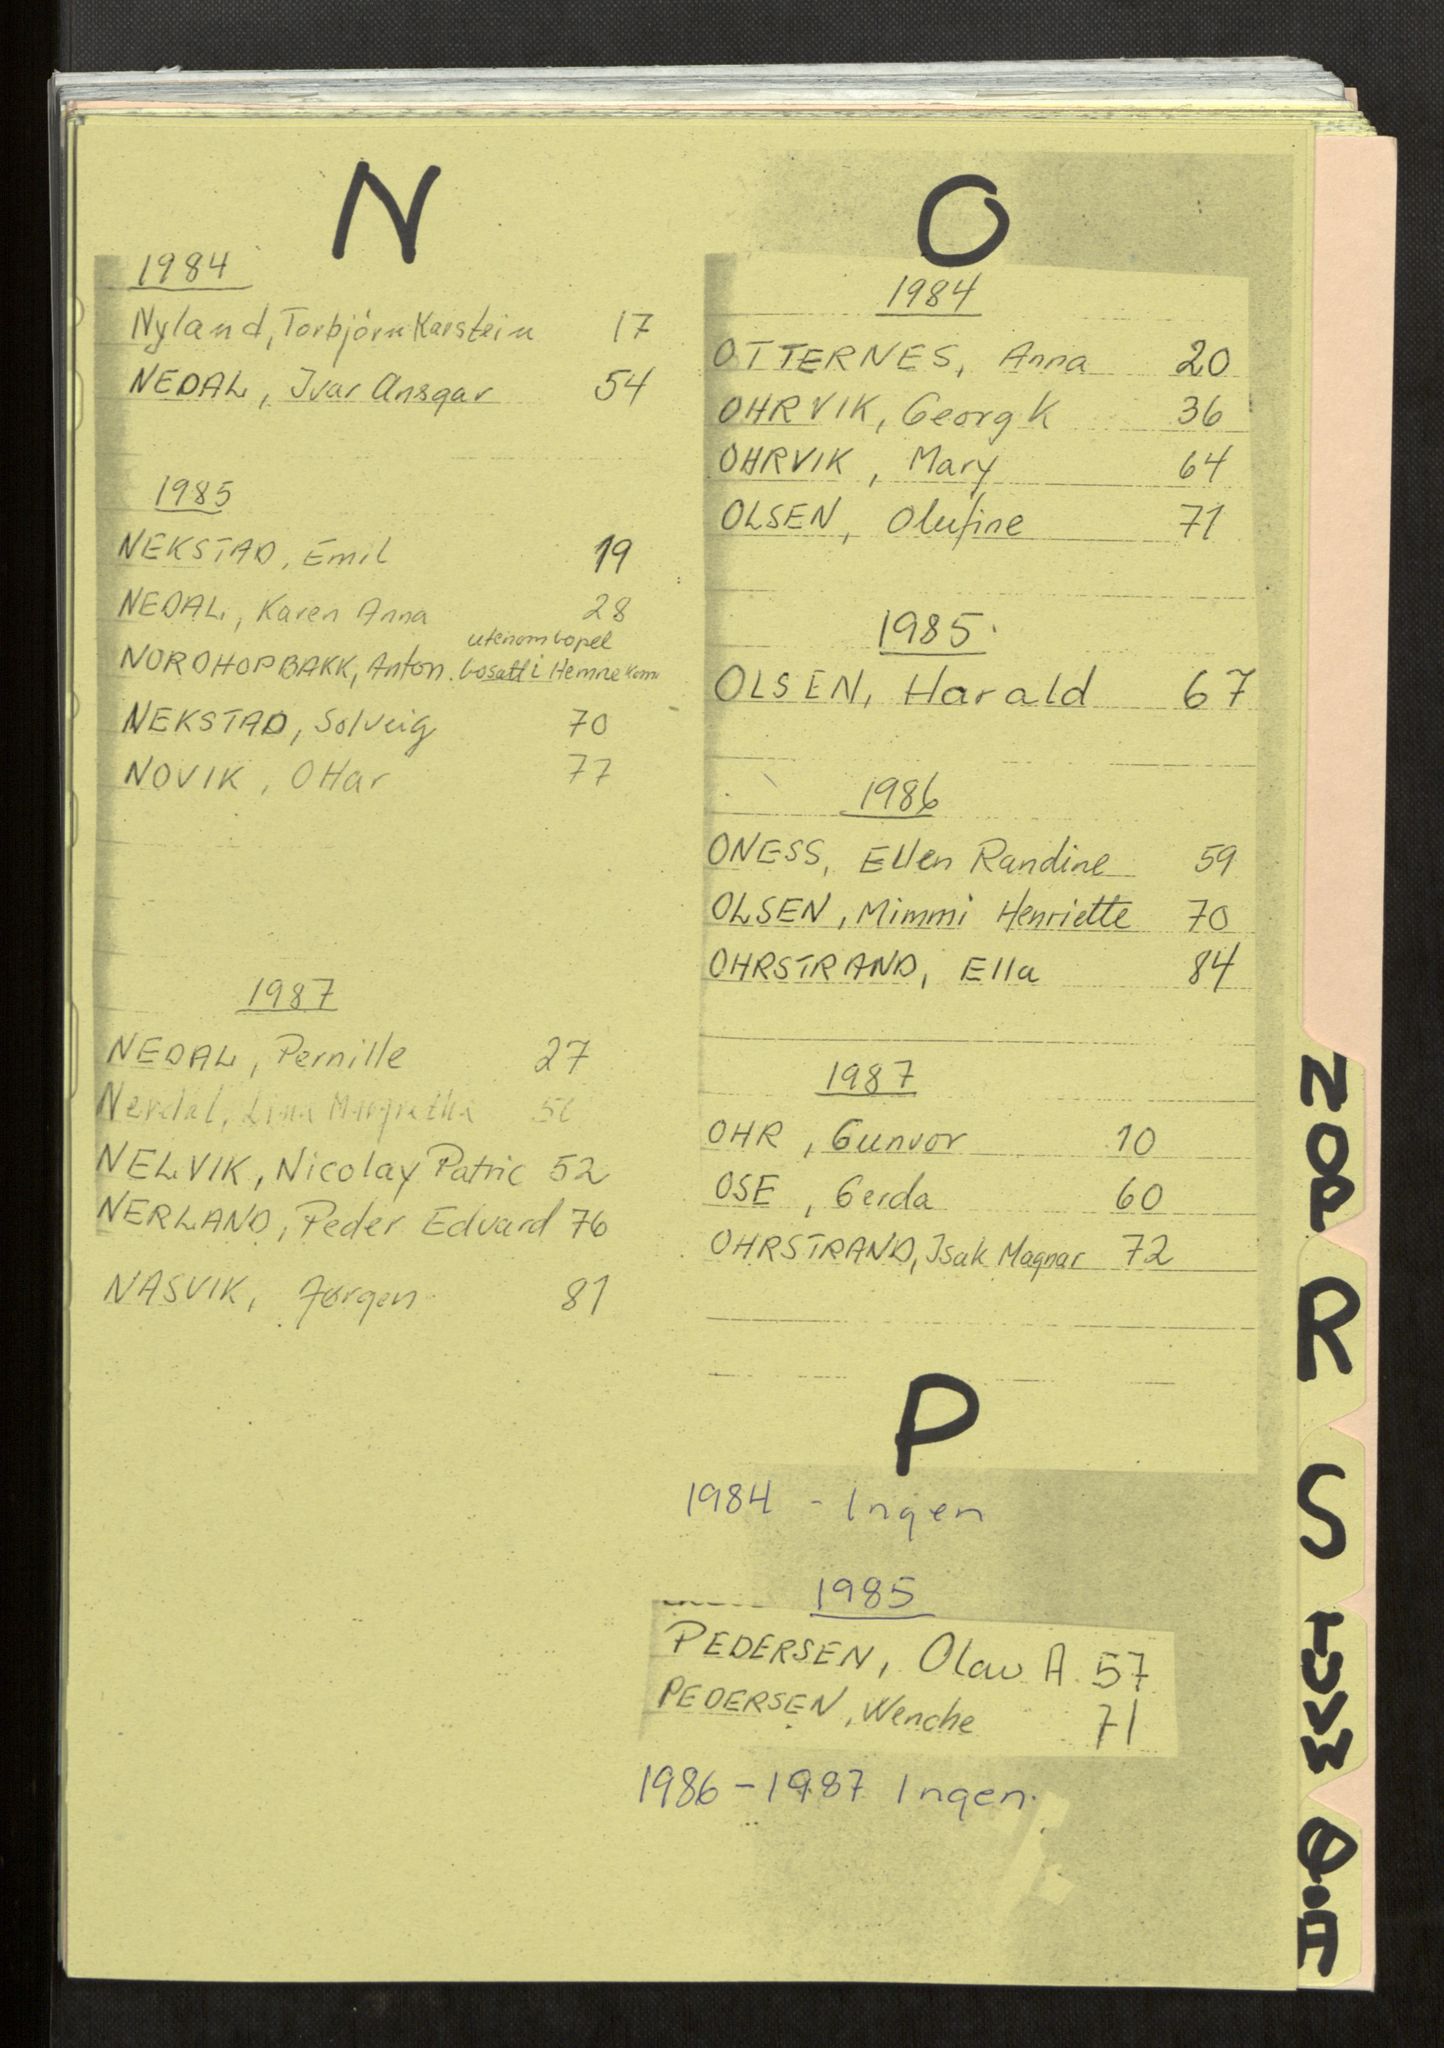 N
1984
Nyland, Torbjörn Karstein 17
NEDAL, Ivar Ansgar 54
1985
NEKSTAD, Emil 19
NEDAL, Karen Anna 28
utenom bopel
NORDHOPBAKK, Anton. bosatt i Hemne kom
NEKSTAD, Solveig 70
NOVIK, Ottar 77
1987
NEDAL, Pernille 27
Nerdal, Lina Margretha
NELVIK, Nicolay Patric 52
NERLAND, Peder Edvard 76
NASVIK, Jørgen 81
O
1984
OTTERNES, Anna 20
OHRVIK, Georg K 36
OHRVIK, Mary 64
OLSEN, Olufine 71
1985
OLSEN, Harald 67
1986
ONESS, Ellen Randine 59
OLSEN, Mimmi Henriette 70
OHRSTRAND, Ella 84
1987
OHR, Gunvor 10
OSE, Gerda 60
OHRSTRAND, Isak Magnar 72
P
1984 - Ingen
1985
PEDERSEN, Olav A. 57
PEDERSEN, Wenche 71
1986-1987 Ingen.
N
O
P
R
S
T
U
V
W
Ø
Å